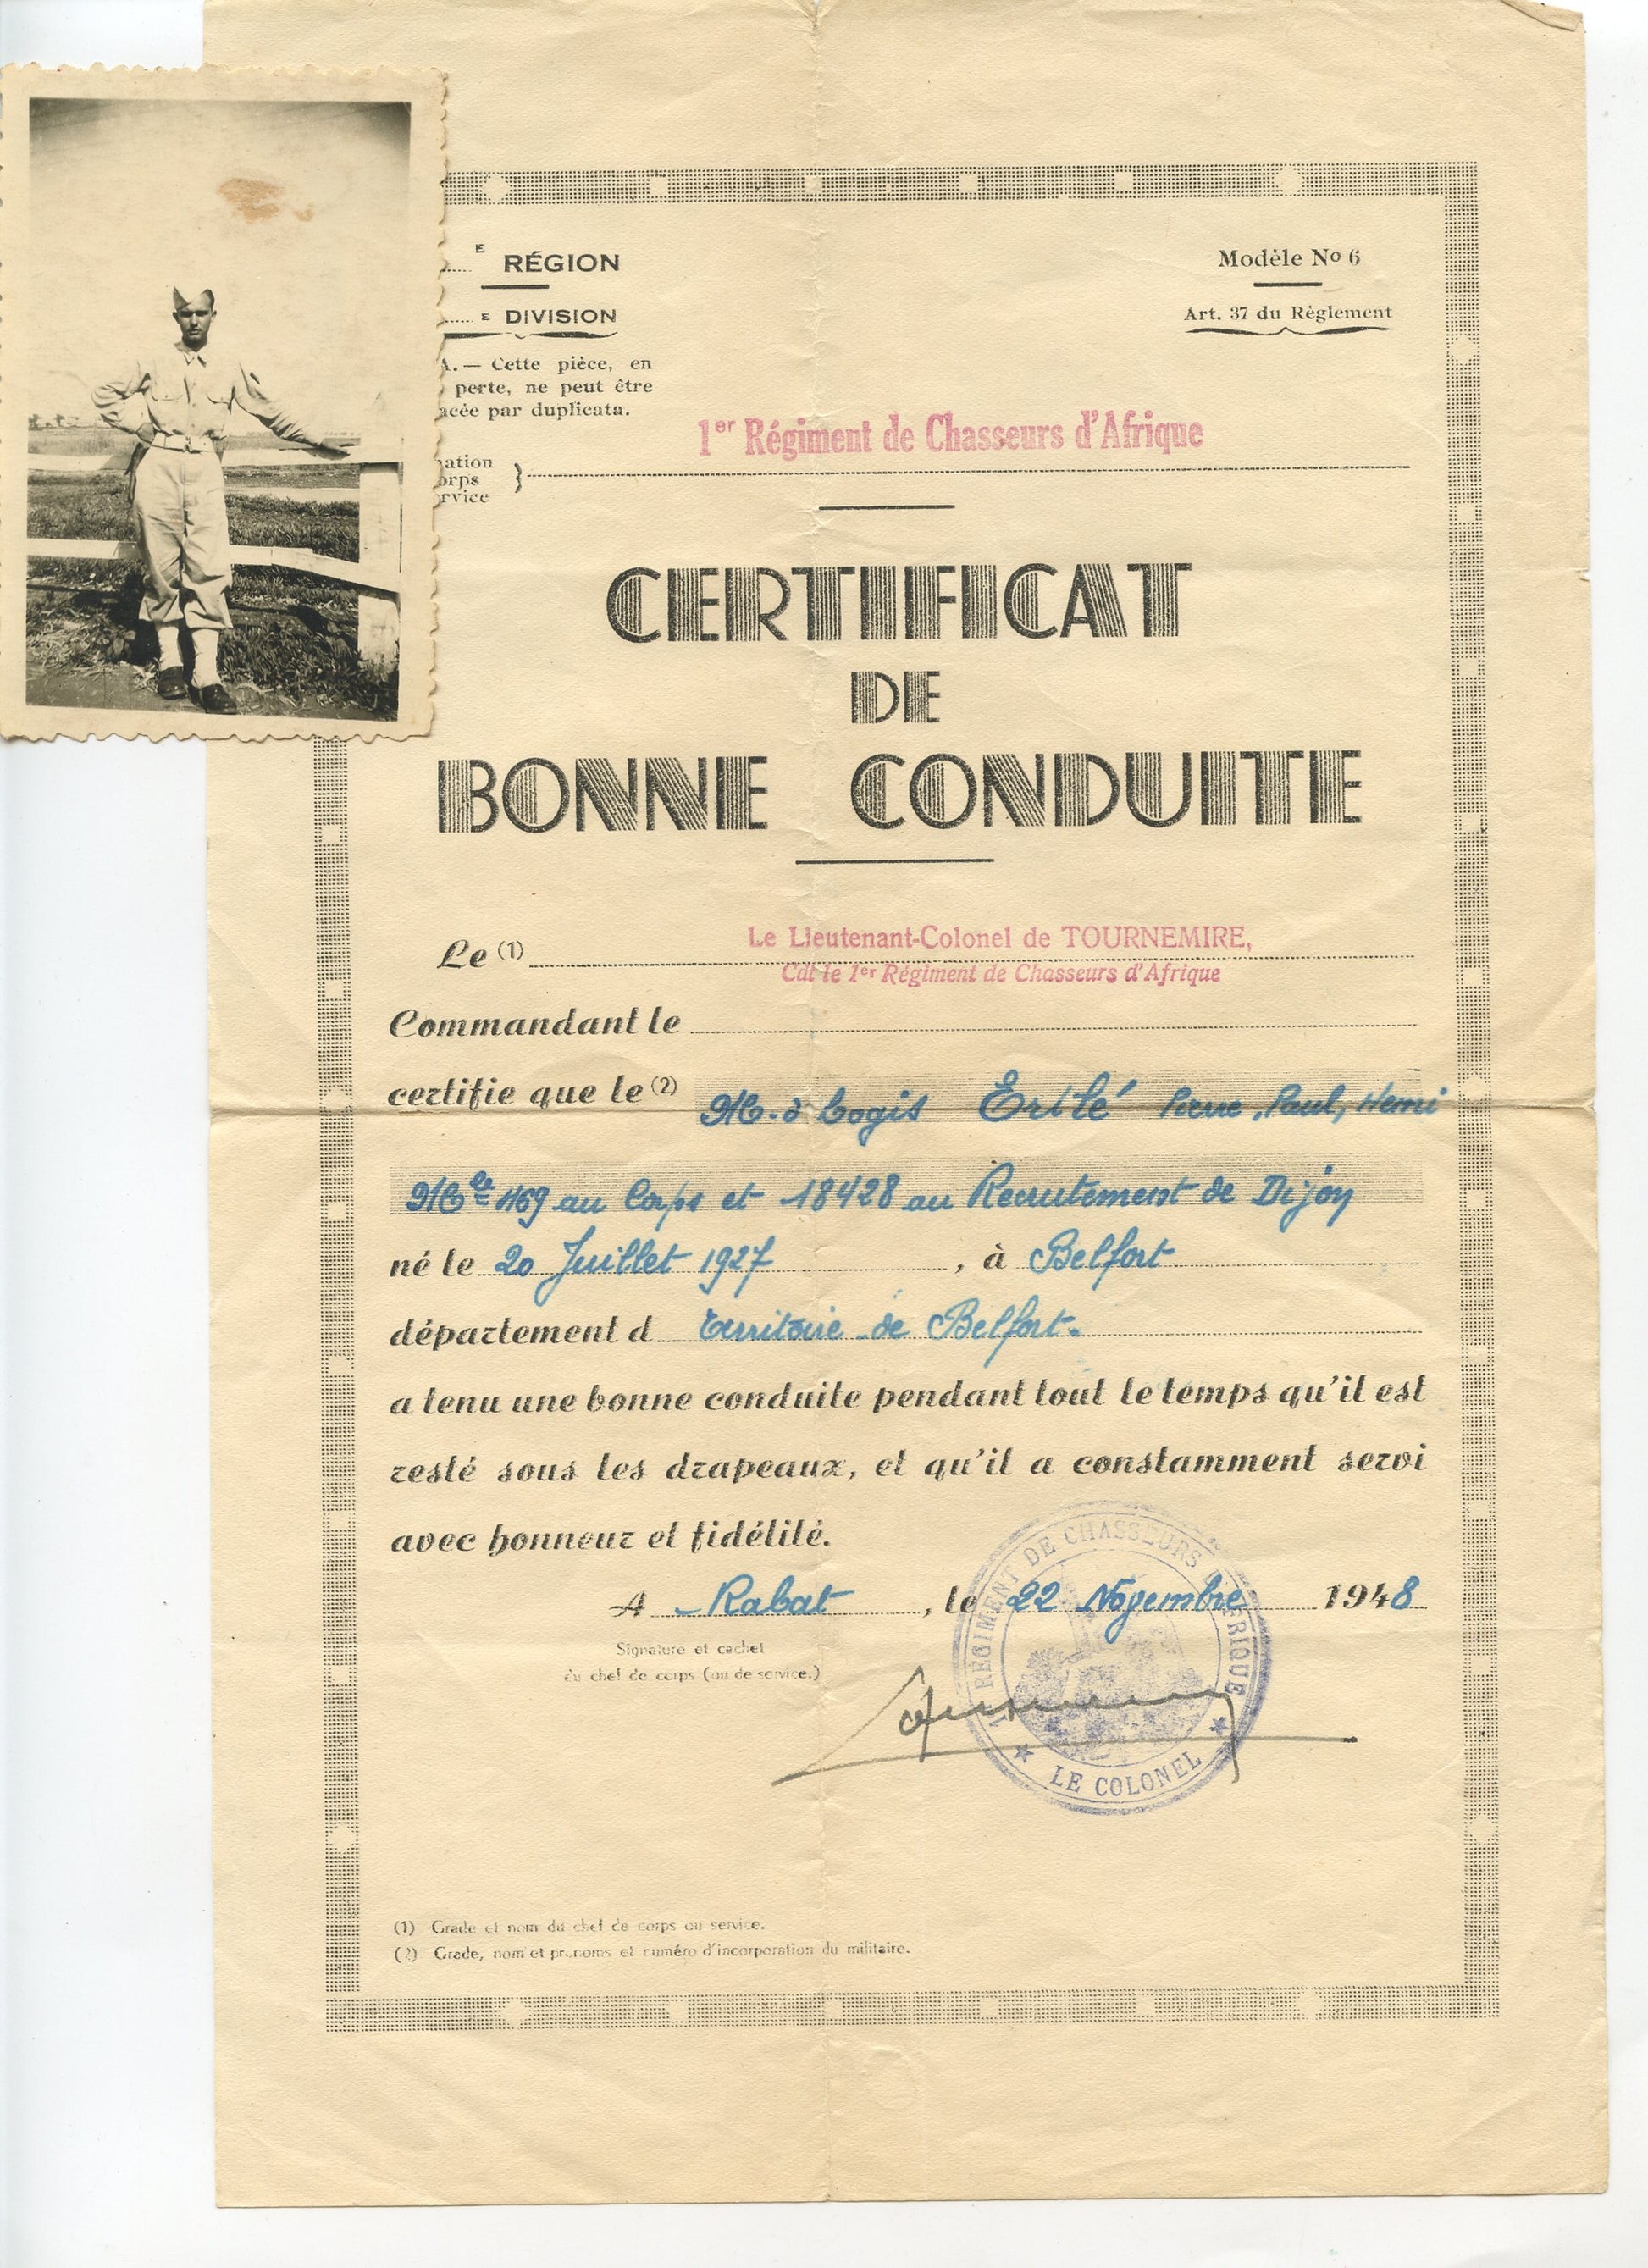 E RÉGION
Modèle No 6
E DIVISION
Art. 37 du Règlement
A. — Cette pièce, en
perte, ne peut être
acée par duplicata.
1er Régiment de Chasseurs d'Afrique
ation
orps
rvice
CERTIFICAT
DE
BONNE CONDUITE
Le Lieutenant-Colonel de TOURNEMIRE,
Le (1)
Cdt le 1er Régiment de Chasseurs d'Afrique
Commandant le
certifie que le (2) M. d Logis Ertlé Pierre, Paul, Henri
Mle 1169 au Corps et 18428 au Recrutement de Dijon
né le 20 Juillet 1927, à Belfort
département d Territoire de Belfort.
a tenu une bonne conduite pendant tout le temps qu'il est
resté sous les drapeaux, et qu'il a constamment servi
avec honneur et fidélité.
A Rabat, le 22 Novembre 1948
Signature et cachet
du chef de corps (ou de service.)
1 RÉGIMENT DE CHASSEURS D'AFRIQUE
LE COLONEL
(1) Grade et nom du chef de corps ou service.
(2) Grade, nom et prénoms et numéro d'incorporation du militaire.